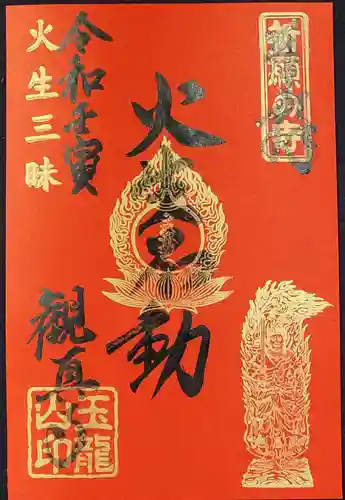 祈願の寺
火三動
令和壬寅
火生三昧
観真
玉龍
山印